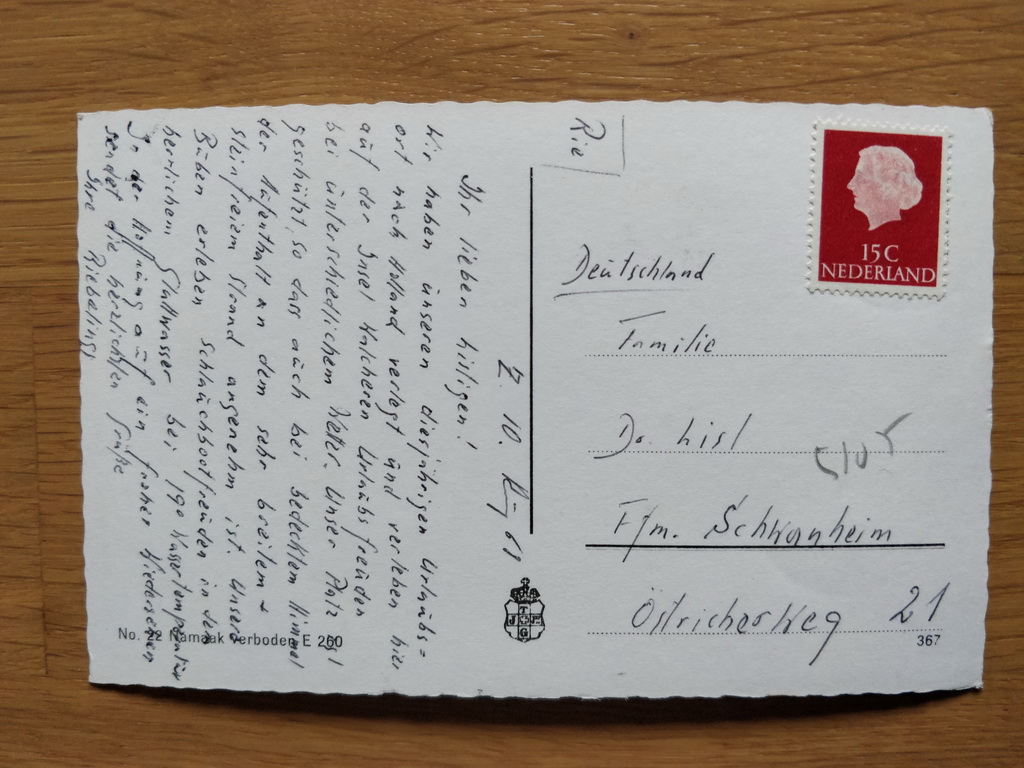 Z. 10. Aug 61
Ihr lieben Lisligen!
Wir haben unseren diesjährigen Urlaubs=
ort nach Holland verlegt und verleben hier
auf der Insel Walcheren Urlaubsfreuden
bei unterschiedlichem Wetter. Unser Platz ist
geschützt, so dass auch bei bedecktem Himmel
der Aufenthalt an dem sehr breiten +
steinfreiem Strand angenehm ist. Unsere
Buben erleben Schlauchbootfreuden in dem
herrlichem Wasser bei 19° Wassertemperatur
In der Hoffnung auf ein frohes Wiedersehen
sendet die herzlichsten Grüße
Ihre Riebelings
No. 22 Namaak verboden E 260
Rie
15 C
NEDERLAND
Deutschland
Familie
Dr. Lisl
5105
Ffm. Schwanheim
Östricherweg 21
367
T
J F
G